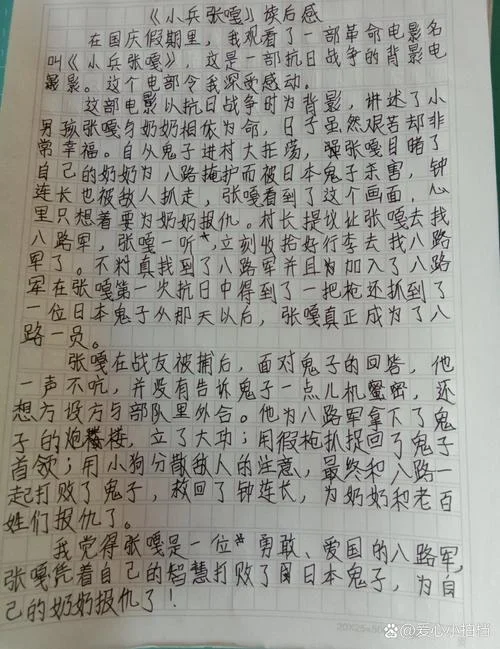 《小兵张嘎》读后感
在国庆假期里，我观看了一部革命电影名
叫《小兵张嘎》，这是一部抗日战争的背景电
影。这个电部令我深受感动。
这部电影以抗日战争时为背影，讲述了小
男孩张嘎与奶奶相依为命，日子虽然艰苦却非
常幸福。自从鬼子进村大扫荡，张嘎目睹了
自己的奶奶为八路掩护而被日本鬼子杀害，钟
连长也被敌人抓走，张嘎看到了这个画面，心
里只想着要为奶奶报仇。村长提议让张嘎去找
八路军，张嘎一听，立刻收拾好行李去找八路
军了。不料真找到了八路军并且为加入了八路
军在张嘎第一次抗日中得到了一把枪还抓到了
一位日本鬼子从那天以后，张嘎真正成为了八
路一员。
张嘎在战友被捕后，面对鬼子的回答，他
一声不吭，并没有告诉鬼子一点儿机密，还
想方设方与部队里外合。他为八路军拿下了鬼
子的炮楼，立了大功；用假枪抓捉回了鬼子
首领；用小狗分散敌人的注意，最终和八路一
起打败了鬼子，救回了钟连长，为奶奶和老百
姓们报仇了。
我觉得张嘎是一位勇敢、爱国的八路军，
张嘎凭着自己的智慧打败了日本鬼子，为自
己的奶奶报仇了！
20X25=500
@爱心小拍档